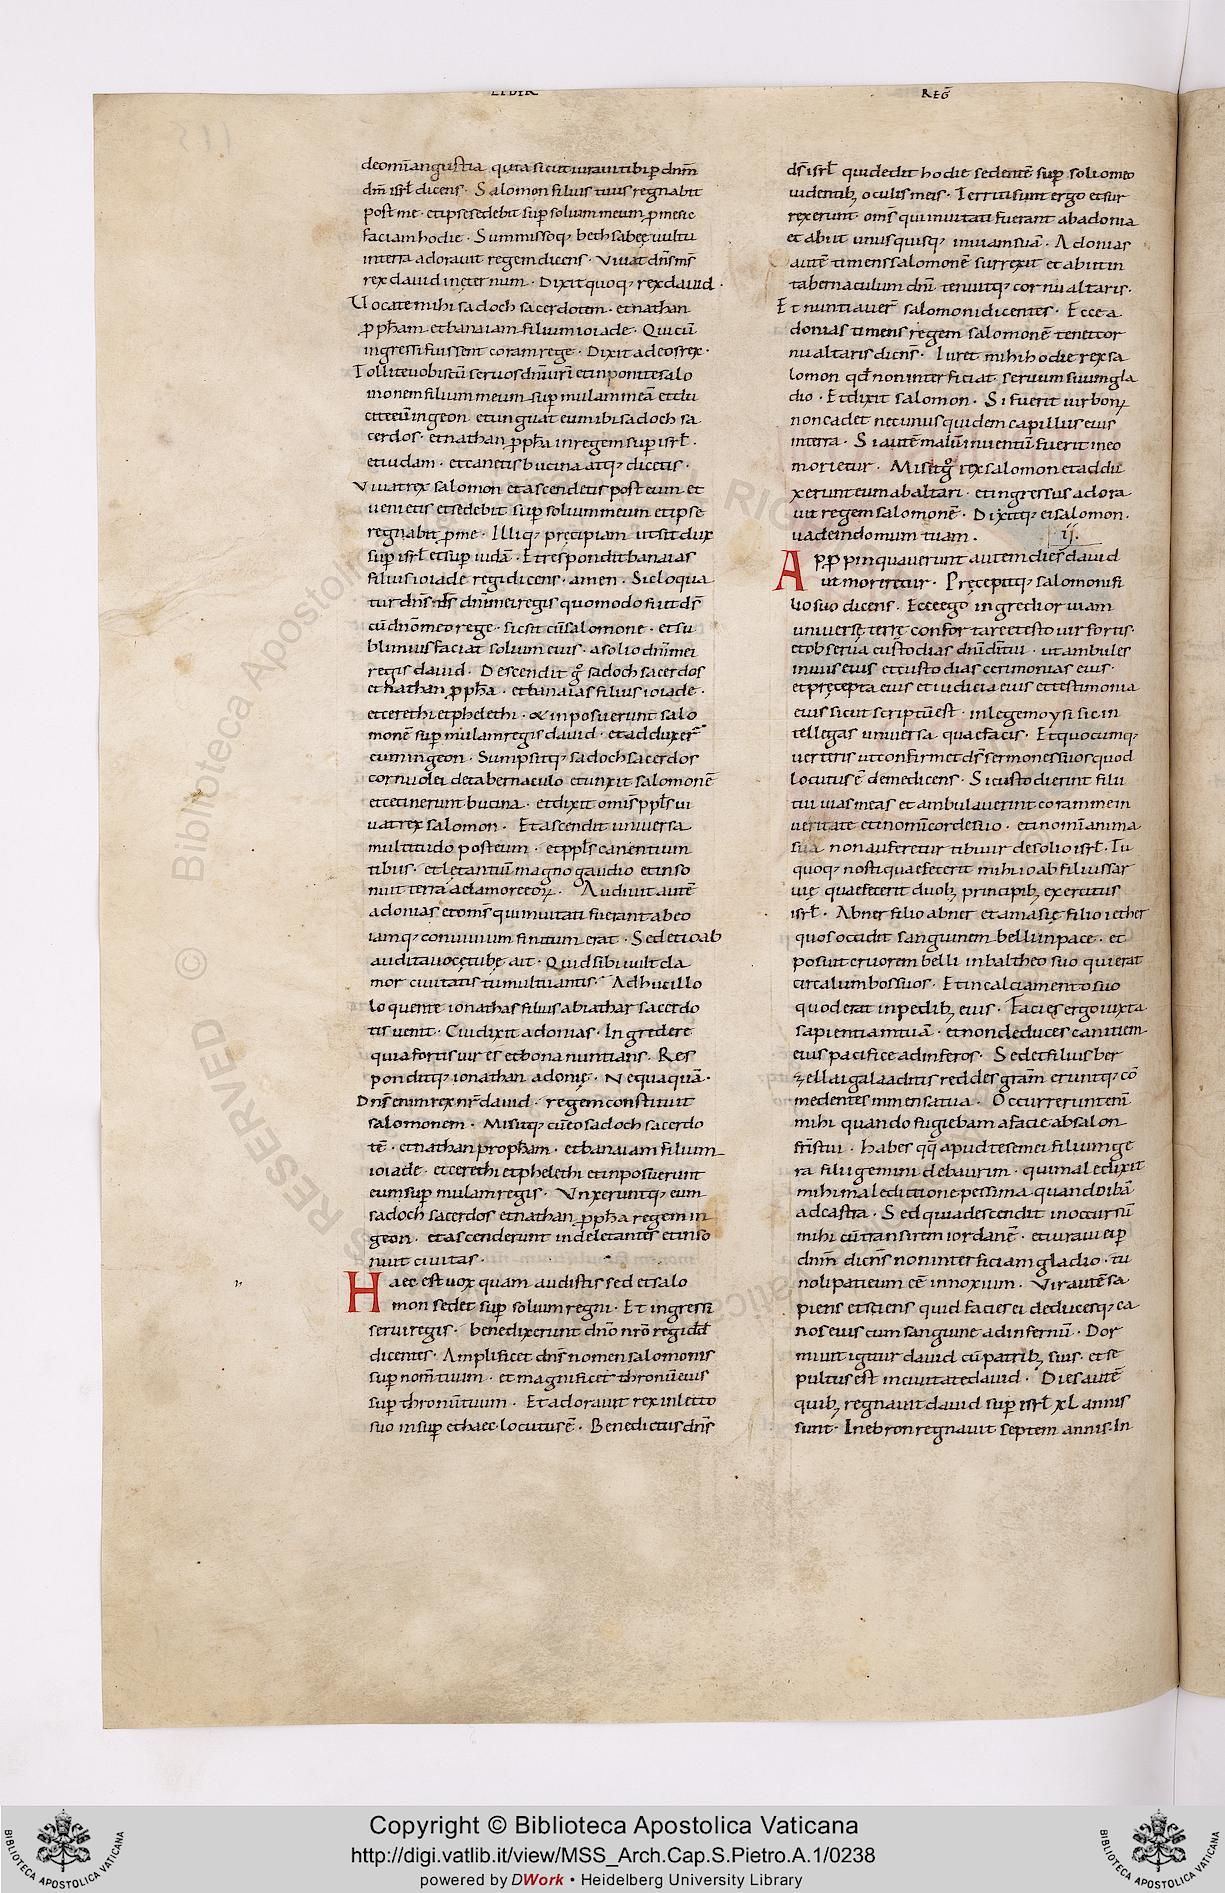 LIBER
REḠ
de om̄i angustia quia sicut iuraui tibi ꝑ dn̄m
dm̄ isrl̄ dicens · Salomon filius tuus regnabit
post me · et ipse sedebit sup̄ solium meum ꝑ me sic
faciam hodie · Summissoq; bethsabeę uultu
in terra adorauit regem dicens · Viuat dn̄s ms̄
rex dauid in eternum · Dixit quoq; rex dauid ·
Uocate mihi sadoch sacerdotem · et nathan
ꝓpham̄ et banaiam filium ioiade · Qui cū
ingressi fuissent coram rege · Dixit ad eos rex ·
Tollite uobiscū seruos dn̄i ur̄i et inponite salo
monem filium meum sup̄ mulam meā et du
cite eū in geon · et unguat eum ibi sadoch sa
cerdos · et nathan ꝓph̄a in regem sup̄ isrl̄ ·
et iudam · et canetis bucina atq; dicetis ·
Viuat rex salomon et ascendetis post eum et
uenietis et sedebit sup̄ solium meum et ipse
regnabit ꝑ me · Illiq; pręcipiam ut sit dux
sup̄ isrl̄ et sup̄ iudā · Et respondit banaias
filius ioiade regi dicens · amen · Sic loqua
tur dn̄s ds̄ dn̄i mei regis quomodo fuit ds̄
cū dn̄o meo rege · sic sit cū salomone · et su
blimius faciat solium eius · a solio dn̄i mei
regis dauid · Descendit g̊ sadoch sacerdos
et nathan ꝓph̄a · et banaias filius ioiade ·
et cerethi et phelethi · & inposuerunt salo
monē sup̄ mulam regis dauid · et adduxer̄
eum in geon · Sumpsitq; sadoch sacerdos
cornu olei de tabernaculo et unxit salomonē
et cecinerunt bucina · et dixit omis̄ ppl̄s ui
uat rex salomon · Et ascendit uniuersa
multitudo post eum · et ppl̄s canentium
tibiis · et lętantiū magno gaudio et inso
nuit terra a clamore eoꝝ · Audiuit autē
adonias et oms̄ qui inuitati fuerant ab eo
iamq; conuiuium finitum erat · Sed et ioab
audita uoce tubę ait · Quid sibi uult cla
mor ciuitatis tumultuantis · Adhuc illo
loquente ionathas filius abiathar sacerdo
tis uenit · Cui dixit adonias · Ingredere
quia fortis uir es et bona nuntians · Res
ponditq; ionathan adonię · Nequaquā ·
Dn̄s enim rex nr̄ dauid · regem constituit
salomonem · Misitq; cū eo sadoch sacerdo
tē · et nathan propham̄ · et banaiam filium
ioiade · et cerethi et phelethi et inposuerunt
eum sup̄ mulam regis · Vnxeruntq; eum
sadoch sacerdos et nathan ꝓph̄a regem in
geon · et ascenderunt inde lętantes et inso
nuit ciuitas ·
Haec est uox quam audistis sed et salo
mon sedet sup̄ solium regni · Et ingressi
serui regis · benedixerunt dn̄o nr̄o regi dd̄
dicentes · Amplificet dn̄s nomen salomonis
sup̄ nom̄ tuum · et magnificet thronū eius
sup̄ thronū tuum · Et adorauit rex in lecto
suo insup̄ et haec locutus ē · Benedictus dn̄s
ds̄ isrl̄ qui dedit hodie sedentē sup̄ solio meo
uidentib; oculis meis · Territi sunt ergo et sur
rexerunt · oms̄ qui inuitati fuerant ab adonia
et abiit unusquisq; in uiam suā · Adonias
autē timens salomonē surrexit et abiit in
tabernaculum dn̄i tenuitq; cornu altaris ·
Et nuntiauer̄ salomoni dicentes · Ecce a
donias timens regem salomonē tenet cor
nu altaris dicēs · Iuret mihi hodie rex sa
lomon qd̄ non interficiat seruum suum gla
dio · Et dixit salomon · Si fuerit uir bonꝰ
non cadet nec unus quidem capillus eius
in terra · Si autē malū inuentū fuerit in eo
morietur · Misit g̊ rex salomon et addu
xerunt eum ab altari · et ingressus adora
uit regem salomonē · Dixitq; ei salomon ·
uade in domum tuam ·
ii.
Apꝓpinquauerunt autem dies dauid
ut moreretur · Pręcepitq; salomoni fi
lio suo dicens · Ecce ego ingredior uiam
uniuersę terrę confortare et esto uir fortis ·
et obserua custodias dn̄i dī tui · ut ambules
in uiis eius et custodias cerimonias eius ·
et pręcepta eius et iudicia eius et testimonia
eius sicut scriptū est · in lege moysi sic in
tellegas uniuersa quae facis · Et quocumq;
uerteris ut confirmet ds̄ sermones suos quod
locutus ē de me dicens · Si custodierint filii
tui uias meas et ambulauerint coram me in
ueritate et in om̄i corde suo · et in om̄i anima
sua non auferetur tibi uir de solio isrl̄ · Tu
quoq; nosti quae fecerit mihi ioab filius sar
uię quae fecerit duob; principib; exercitus
isrl̄ · Abner filio abner et amasię filio iether
quos occidit sanguinem belli in pace · et
posuit cruorem belli in baltheo suo qui erat
circa lumbos suos · Et in calciamento suo
quod erat in pedib; eius · Facies ergo iuxta
sapientiam tuā · et non deduces canitiem
eius pacifice ad inferos · Sed et filiis ber
zellai galaaditis reddes gratiā eruntq; cō
medentes in mensa tua · Occurrerunt enī
mihi quando fugiebam a facie absalon
fr̄is tui · Habes qq̄ apud te semei filium ge
ra filii gemini de baurim · qui maledixit
mihi maledictione pessima quando ibā
ad castra · Sed quia descendit in occursū
mihi cū transirem iordanē · et iuraui ei ꝑ
dn̄m dicēs non interficiam gladio · tu
noli pati eum eē innoxium · Vir autē sa
piens et sciens quid facies ei deducesq; ca
nos eius cum sanguine ad infernū · Dor
miuit igitur dauid cū patrib; suis · et se
pultus est in ciuitate dauid · Dies autē
quib; regnauit dauid sup̄ isrl̄ xL annis
sunt · In ebron regnauit septem annis · In
Copyright © Biblioteca Apostolica Vaticana
http://digi.vatlib.it/view/MSS_Arch.Cap.S.Pietro.A.1/0238
powered by DWork • Heidelberg University Library